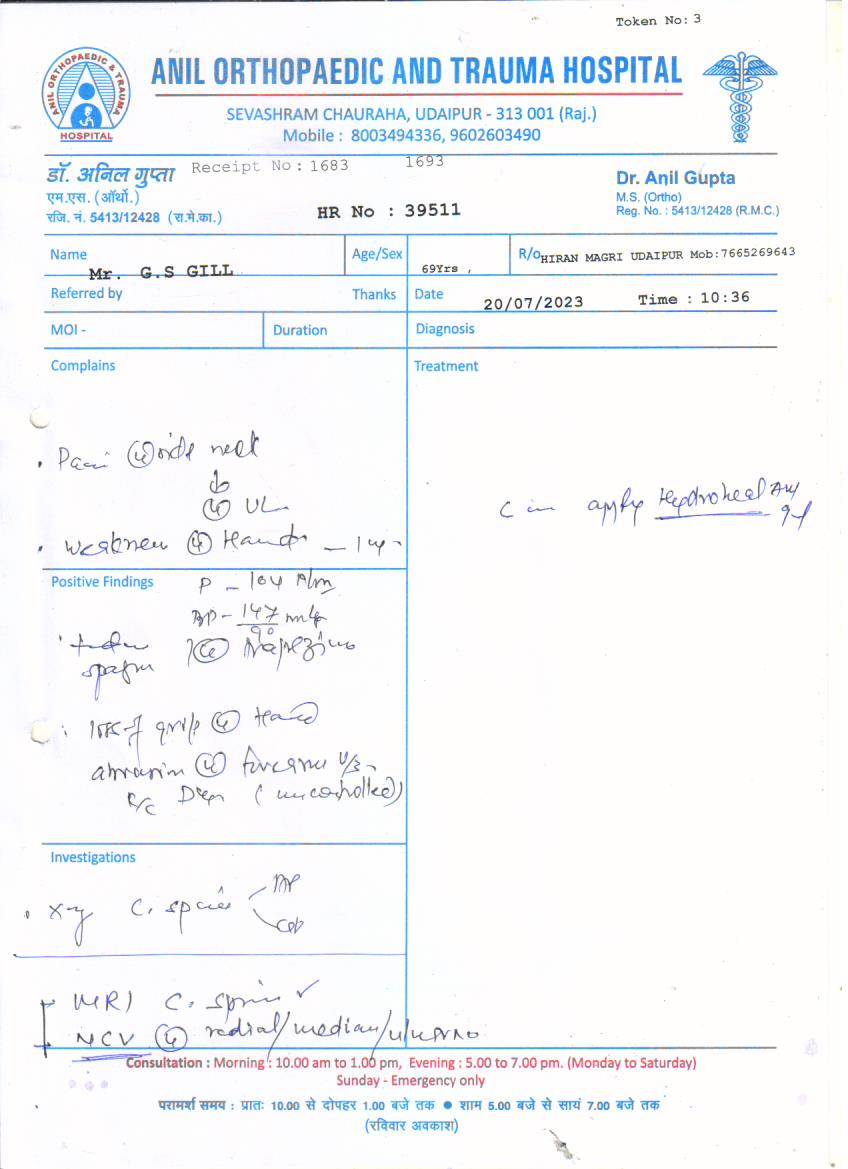 Token No: 3
ANIL ORTHOPAEDIC & TRAUMA
HOSPITAL
ANIL ORTHOPAEDIC AND TRAUMA HOSPITAL
SEVASHRAM CHAURAHA, UDAIPUR - 313 001 (Raj.)
Mobile : 8003494336, 9602603490
डॉ. अनिल गुप्ता
Receipt No: 1683 1693
एम.एस. (ऑर्थो.)
रजि. नं. 5413/12428 (रा.मे.का.)
HR No : 39511
Dr. Anil Gupta
M.S. (Ortho)
Reg. No. : 5413/12428 (R.M.C.)
Name Mr. G.S GILL
Age/Sex 69Yrs ,
R/o HIRAN MAGRI UDAIPUR Mob:7665269643
Referred by Thanks
Date 20/07/2023 Time : 10:36
MOI - Duration Diagnosis
Complains
Treatment
neck
UL
weakness Hand
apply Hydroheal
Positive Findings
P - 104
BP - 147
90
spasm Trapezius
loss of grip Hand
forearm
(uncontrolled)
Investigations
X-ray C. spine AP
MRI C. spine
NCV radial/median/ulnar
Consultation : Morning : 10.00 am to 1.00 pm, Evening : 5.00 to 7.00 pm. (Monday to Saturday)
Sunday - Emergency only
परामर्श समय : प्रातः 10.00 से दोपहर 1.00 बजे तक ● शाम 5.00 बजे से सायं 7.00 बजे तक
(रविवार अवकाश)